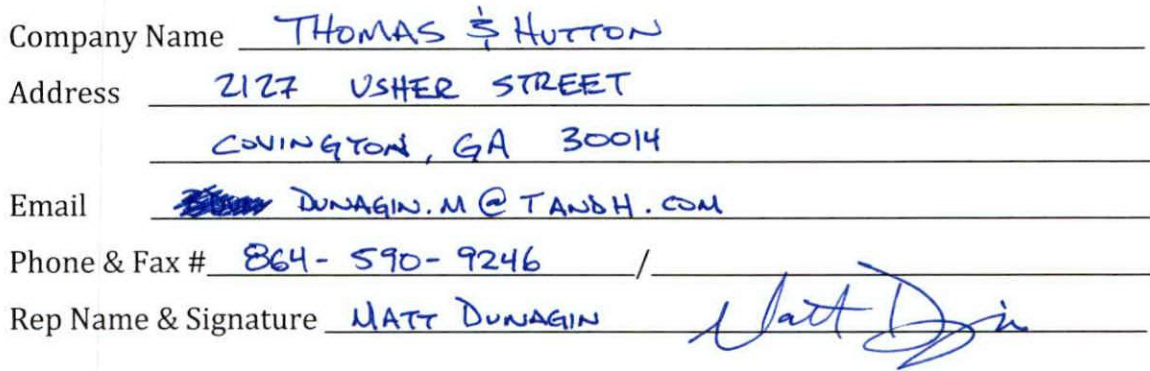 Company Name THOMAS & HUTTON
Address 2127 USHER STREET
COVINGTON, GA 30014
Email DUNAGIN.M@TANDH.COM
Phone & Fax # 864-590-9246 /
Rep Name & Signature MATT DUNAGIN Matt D